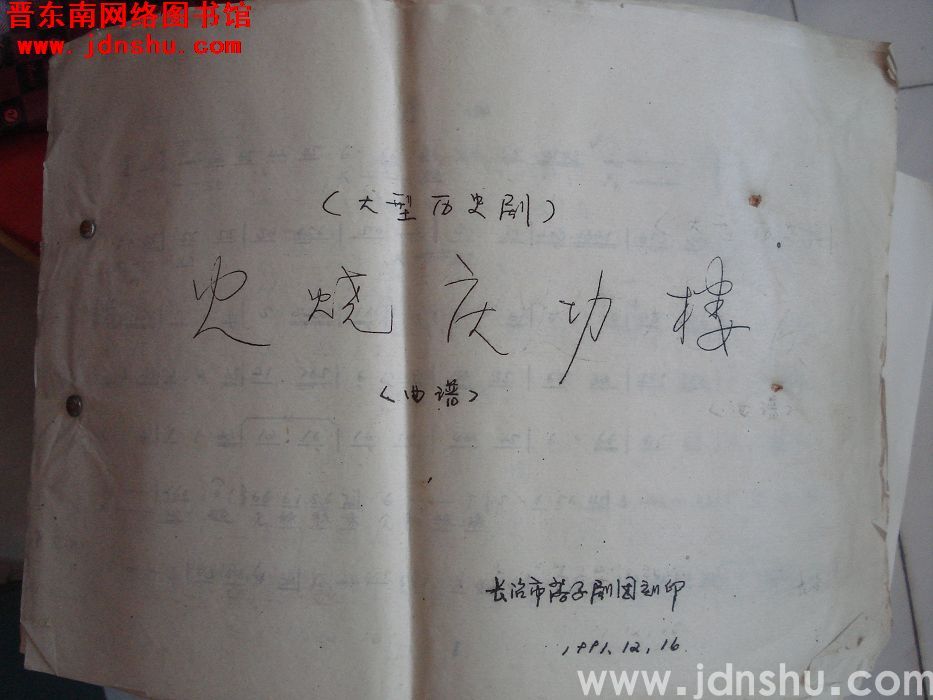 晋东南网络图书馆
www.jdnshu.com
（大型历史剧）
火烧庆功楼
（曲谱）
长治市落子剧团刻印
1991.12.16
www.jdnshu.com